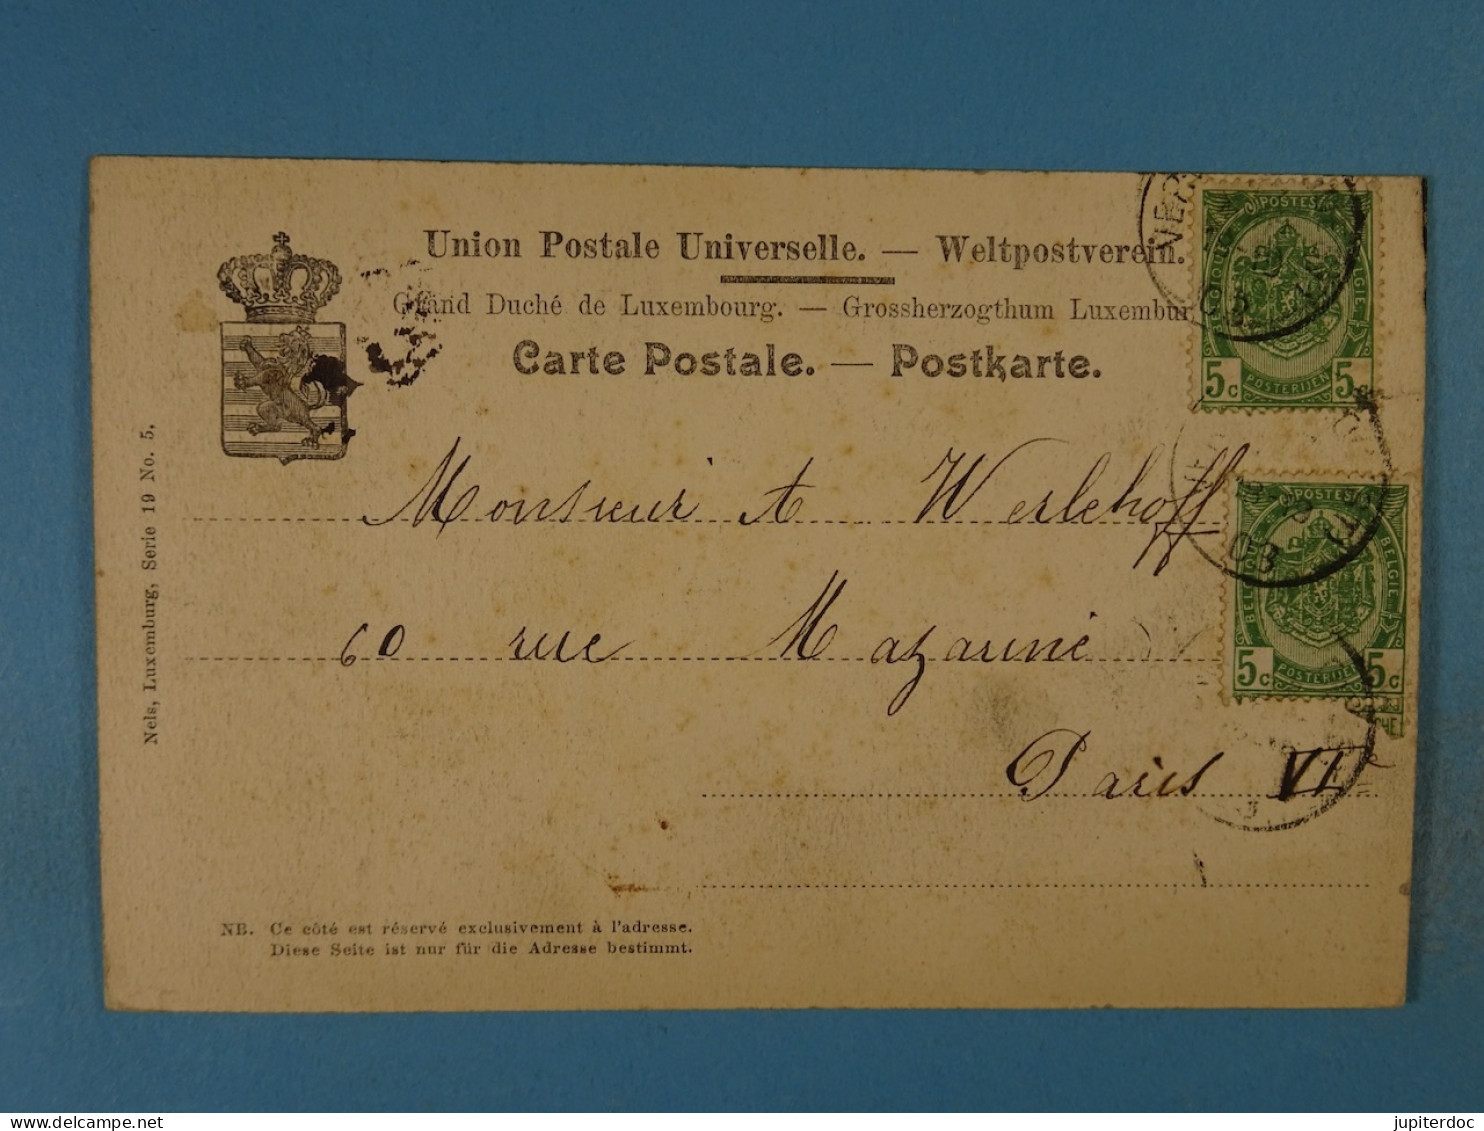 Union Postale Universelle. — Weltpostverein.
Grand Duché de Luxembourg. — Grossherzogthum Luxembur
Carte Postale. — Postkarte.
Nels, Luxemburg, Serie 19 No. 5.
Monsieur A Werlehoff
60 rue Mazarine
Paris VI
NB. Ce côté est réservé exclusivement à l'adresse.
Diese Seite ist nur für die Adresse bestimmt.
POSTES
BELGIE
5c POSTERIJEN 5c
POSTES
BELGIQUE BELGIE
5c POSTERIJEN 5c
03
jupiterdoc